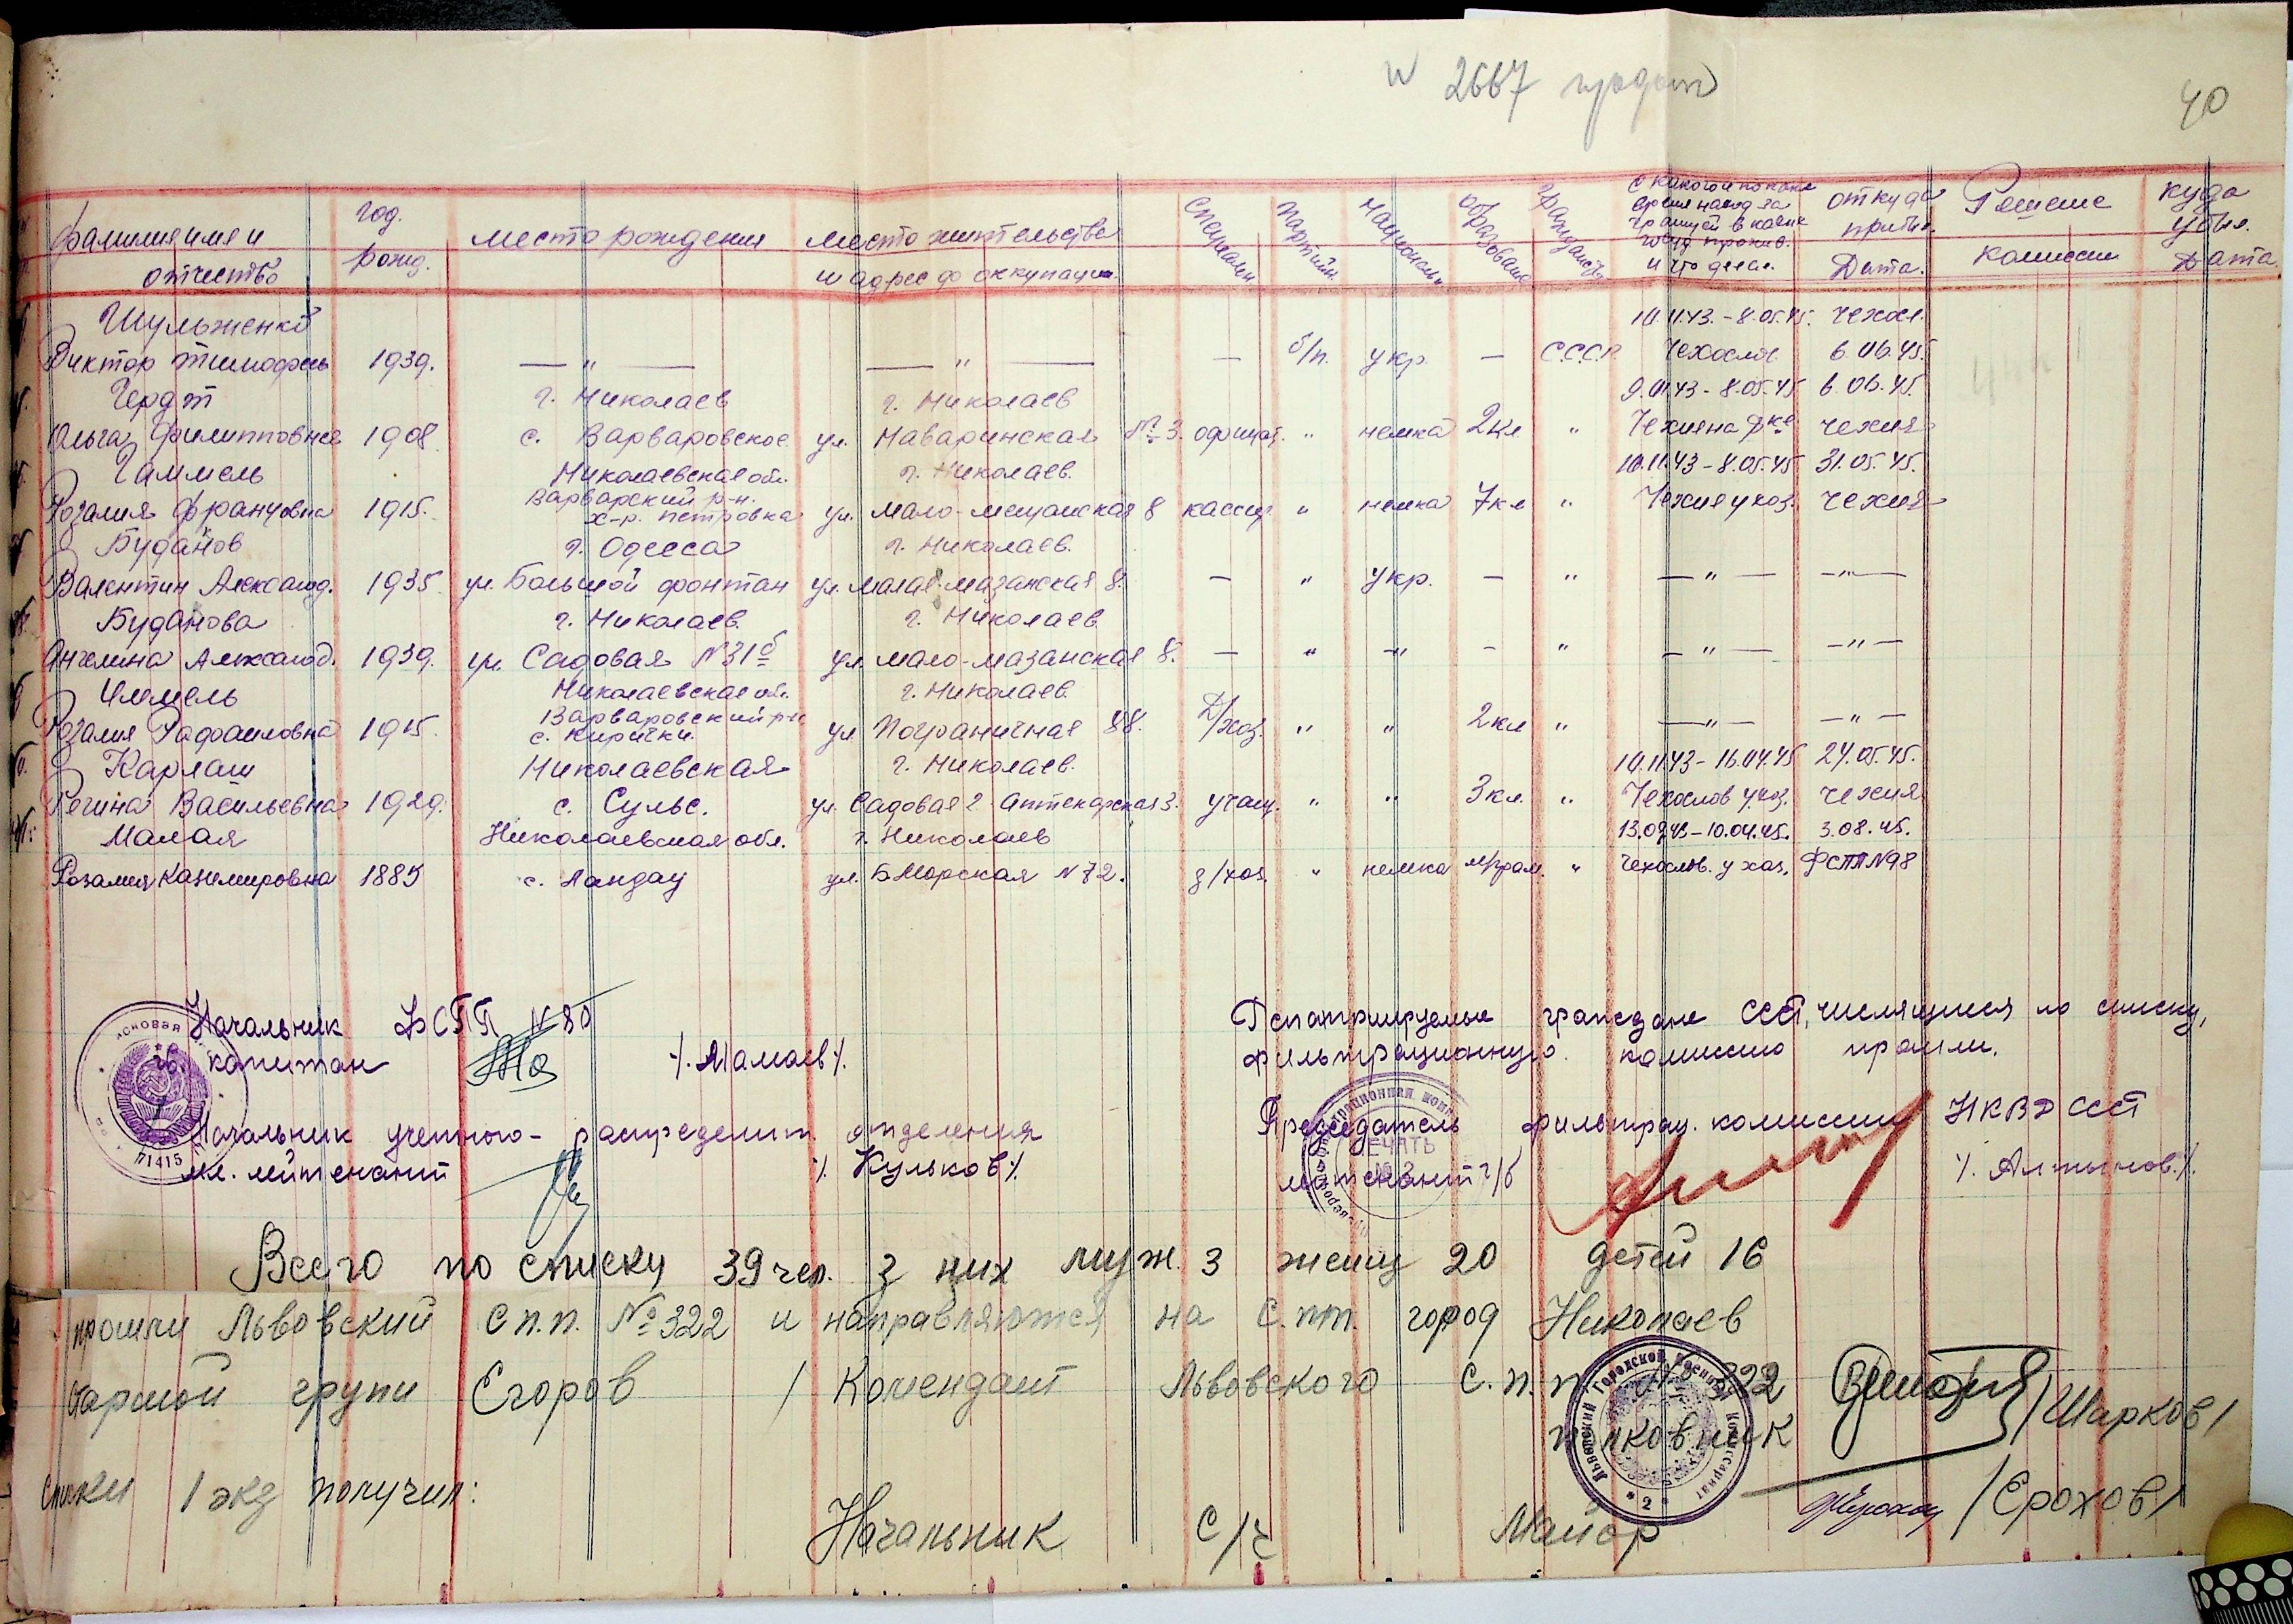 2667
40
фамилия имя и отчество
год. рожд.
место рождения
место жительства и адрес до оккупации
откуда прибыл. Дата.
Решение комиссии
куда убыл. Дата
Шульженко 10.11.43. - 8.05.45. Чехосл.
Виктор Тимофеев 1939. — " — — " — — б/п. укр. — С.С.С.Р. 6.06.45.
Гердт г. Николаев г. Николаев 8.05.45 6.06.45.
Ольга Филипповна 1908 с. Варваровское ул. Наваринская № 3. официат. " немка 2кл " Чехия
Гаммель Николаевская обл. г. Николаев. 10.11.43 - 8.05.45 31.05.45.
Розалия Францовна 1915. Варварский р-н. х-р. Петровка ул. Мало-мещанская 8 кассир " немка 7кл " Чехия у хоз. Чехия
Буданов г. Одесса г. Николаев.
Валентин Александ. 1935 ул. Большой фонтан ул. Малая-мазанская 8. — " укр. — " — " — — " —
Буданова г. Николаев г. Николаев
Ангелина Александ. 1939. ул. Садовая N 31б ул. мало-мазанская 8. — " — " — - " — " — — " —
Николаевская обл. г. Николаев.
Розалия Рафаиловна 1915. Варваровский р-н с. Кирички. ул Пограничная 88. Д/хоз. " " 2кл " — " — — " —
Карлаш Николаевская г. Николаев. 10.11.43 - 16.04.45 24.05.45.
Регина Васильевна 1929. с. Сульс. ул. Садовая 2 Аптекарская 3. учащ. " " 3кл. " Чехослов у хоз. Чехия
Малая Николаевская обл. г. Николаев 10.04.45. 3.08.45.
Розалия Казимировна 1885 с. Ландау ул. Б Морская N 72. д/хоз. " немка м/грам. " Чехослов. у хоз. ФСПП N 98
Начальник ФСПП N 80
гв. капитан /. Мамаев /.
Начальник учетного - распределит. отделения
мл. лейтенант /. Кульков /.
Репатриируемые граждане СССР, числящиеся по списку,
фильтрационную комиссию прошли.
Председатель фильтрац. комиссии НКВД СССР
лейтенант г/б /. Алтынов. /.
П1415
ПЕЧАТЬ
Всего по списку 39 чел. з них муж. 3 женщ 20 детей 16
прошли Львовский С п.п. № 322 и направляются на С.пп. город Николаев
Старшой групи Егоров / Комендант Львовского С.п.п. № 322
полковник /Шарков/
Львовский Городской Военный Комиссариат
* 2 *
Списки 1 экз получил:
Начальник С/ч Майор /Ерохов/